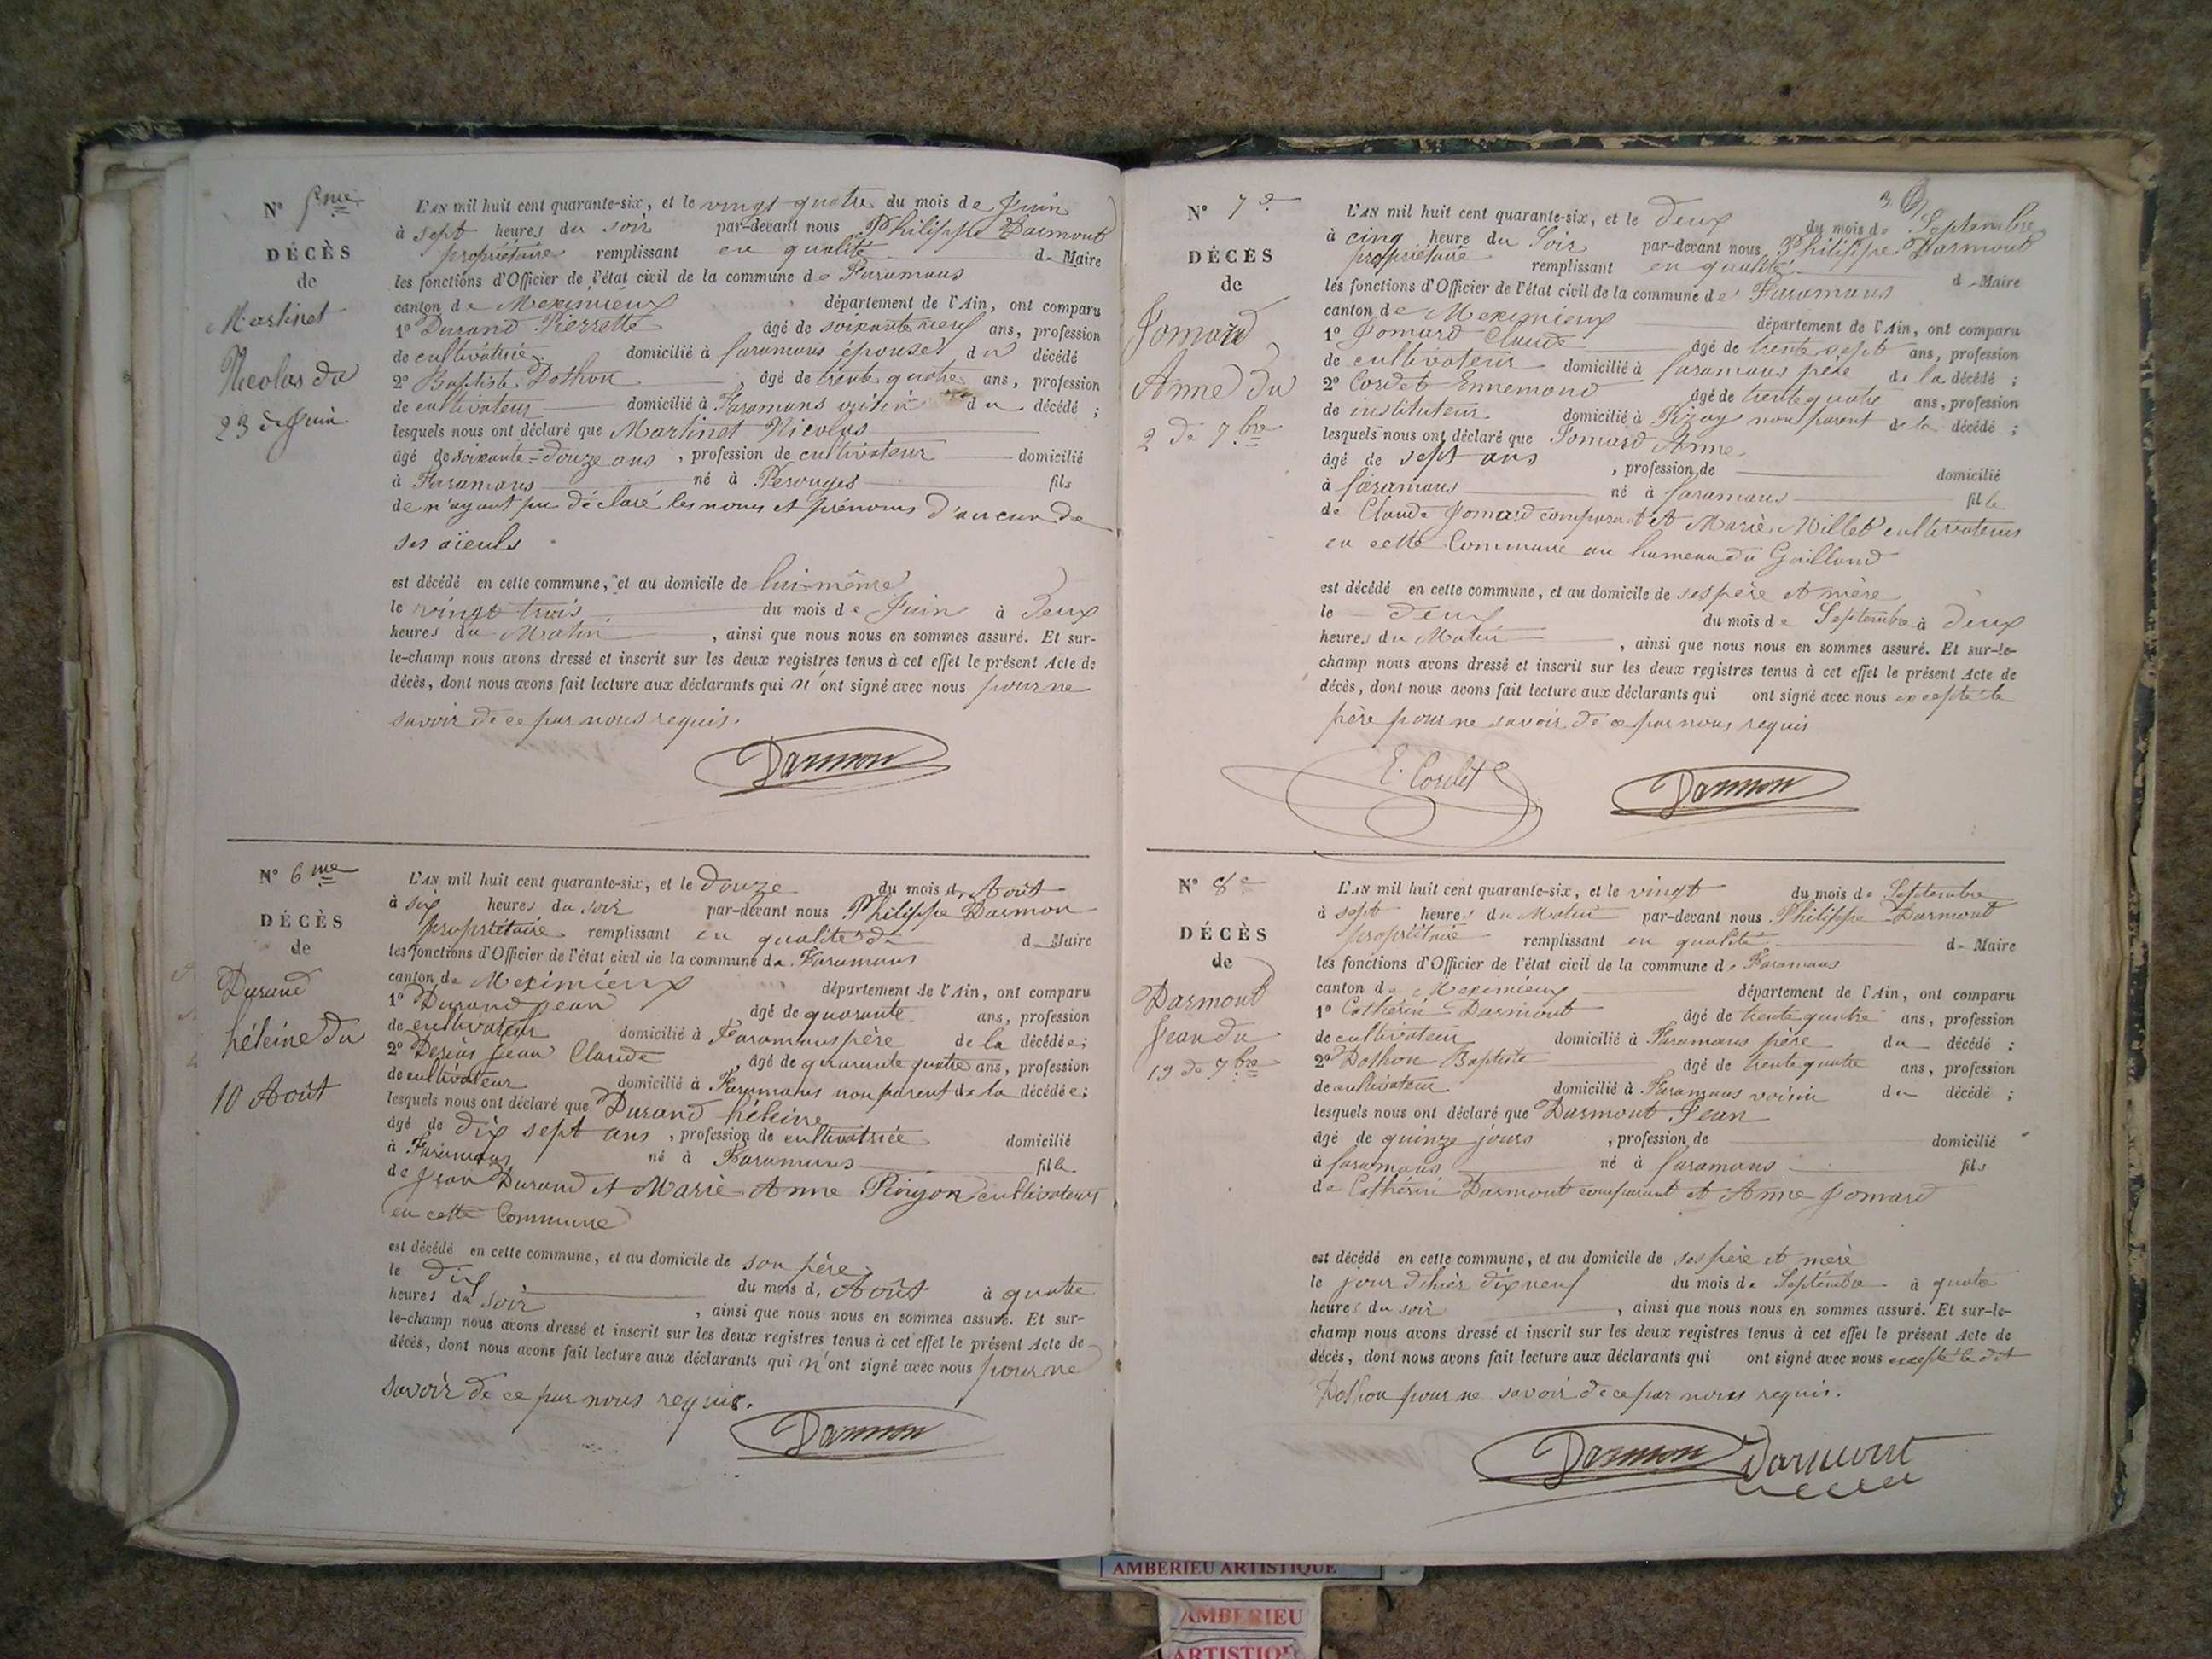 N° 5me
DÉCÈS
de
Martinet
Nicolas du
23 de Juin
L'AN mil huit cent quarante-six, et le vingt quatre du mois de Juin
à sept heures du soir par-devant nous Philippe Darmont
propriétaire remplissant en qualité de Maire
les fonctions d'Officier de l'état civil de la commune de Faramans
canton de Meximieux département de l'Ain, ont comparu
1° Durand Pierrette âgé de soixante neuf ans, profession
de cultivatrice domicilié à faramans épouse du décédé
2° Baptiste Dothon, âgé de trente quatre ans, profession
de cultivateur domicilié à Faramans voisin du décédé ;
lesquels nous ont déclaré que Martinet Nicolas
âgé de soixante-douze ans, profession de cultivateur domicilié
à Faramans né à Perouges fils
de n'ayant pu déclaré les noms et prénoms d'aucun de
ses aïeuls
est décédé en cette commune, et au domicile de lui-même
le vingt trois du mois de Juin à deux
heures du Matin, ainsi que nous nous en sommes assuré. Et sur-
le-champ nous avons dressé et inscrit sur les deux registres tenus à cet effet le présent Acte de
décès, dont nous avons fait lecture aux déclarants qui n'ont signé avec nous pour ne
savoir de ce par nous requis.
Darmon
N° 6me
DÉCÈS
de
Durand
héleine du
10 Août
L'AN mil huit cent quarante-six, et le douze du mois d'Août
à six heures du soir par-devant nous Philippe Darmon
propriétaire remplissant en qualité de d Maire
les fonctions d'Officier de l'état civil de la commune de Faramans
canton de Meximieux département de l'Ain, ont comparu
1° Durand jean âgé de quarante ans, profession
de cultivateur domicilié à Faramans père de la décédée;
2° Jean Claude, âgé de quarante quatre ans, profession
de cultivateur domicilié à Faramans non parent de la décédée;
lesquels nous ont déclaré que Durand héleine
âgé de dix sept ans, profession de cultivatrice domicilié
à Faramans né à Faramans fille
de Jean Durand et Marie Anne cultivateurs
en cette Commune
est décédé en cette commune, et au domicile de son père
le dix du mois d'Août à quatre
heures du soir, ainsi que nous nous en sommes assuré. Et sur-
le-champ nous avons dressé et inscrit sur les deux registres tenus à cet effet le présent Acte de
décès, dont nous avons fait lecture aux déclarants qui n'ont signé avec nous pour ne
savoir de ce par nous requis.
Darmon
N° 7e
DÉCÈS
de
Jomard
Anne du
2 de 7bre
L'AN mil huit cent quarante-six, et le deux du mois de Septembre
à cinq heure du Soir par-devant nous Philippe Darmont
propriétaire remplissant en qualité d Maire
les fonctions d'Officier de l'état civil de la commune de Faramans
canton de Meximieux département de l'Ain, ont comparu
1° Jomard Claude âgé de trente sept ans, profession
de cultivateur domicilié à faramans père de la décédé ;
2° Cordet Ennemond âgé de trente quatre ans, profession
de instituteur domicilié à Pizay non parent de la décédé ;
lesquels nous ont déclaré que Jomard Anne
âgé de sept ans, profession de domicilié
à faramans né à faramans fille
de Claude Jomard comparant et Marie Millet cultivateurs
en cette Commune au hameau du Gaillond
est décédé en cette commune, et au domicile de ses père et mère
le deux du mois de Septembre à deux
heures du Matin, ainsi que nous nous en sommes assuré. Et sur-le-
champ nous avons dressé et inscrit sur les deux registres tenus à cet effet le présent Acte de
décès, dont nous avons fait lecture aux déclarants qui ont signé avec nous excepté le
père pour ne savoir de ce par nous requis
E. Cordet Darmon
N° 8e
DÉCÈS
de
Darmont
Jean du
19 de 7bre
L'AN mil huit cent quarante-six, et le vingt du mois de Septembre
à sept heures du Matin par-devant nous Philippe Darmont
propriétaire remplissant en qualité de Maire
les fonctions d'Officier de l'état civil de la commune de Faramans
canton de Meximieux département de l'Ain, ont comparu
1° Cathérin Darmont âgé de trente quatre ans, profession
de cultivateur domicilié à Faramans père du décédé ;
2° Dothon Baptiste âgé de trente quatre ans, profession
de cultivateur domicilié à Faramans voisin du décédé ;
lesquels nous ont déclaré que Darmont Jean
âgé de quinze jours, profession de domicilié
à faramans né à faramans fils
de Cathérin Darmont comparant et Anne Jomard
est décédé en cette commune, et au domicile de ses père et mère
le jour d'hier dix neuf du mois de Septembre à quatre
heures du soir, ainsi que nous nous en sommes assuré. Et sur-le-
champ nous avons dressé et inscrit sur les deux registres tenus à cet effet le présent Acte de
décès, dont nous avons fait lecture aux déclarants qui ont signé avec nous excepté le dit
Dothon pour ne savoir de ce par nous requis.
Darmon Darmont
AMBERIEU ARTISTIQUE
AMBERIEU